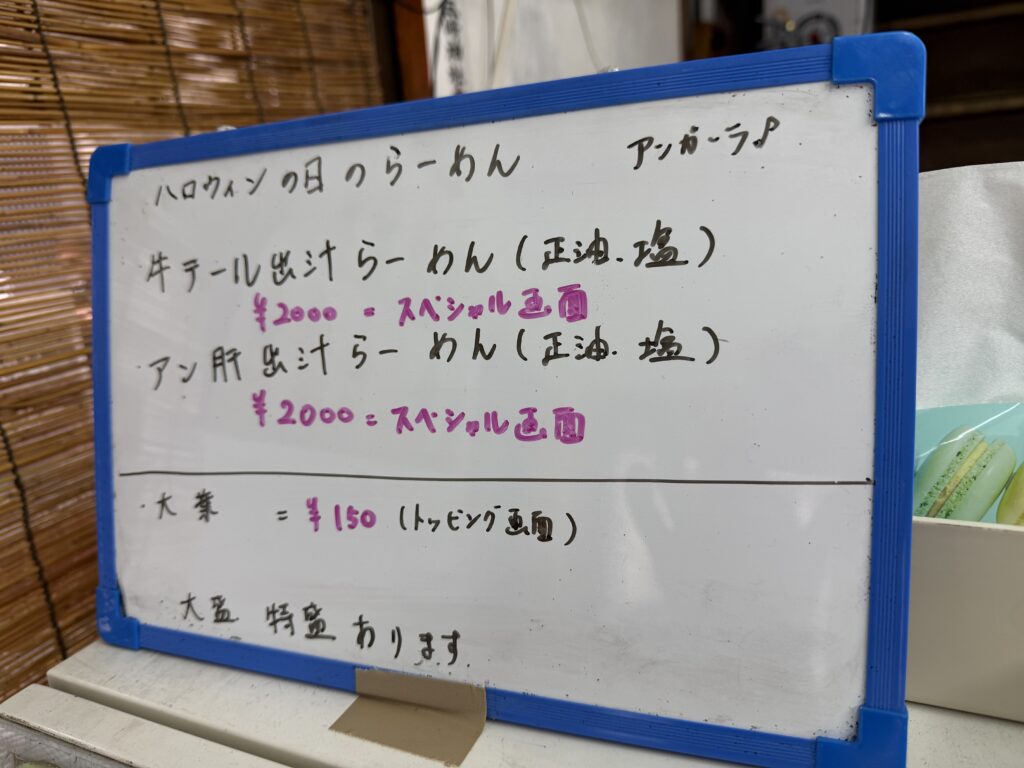 ハロウィンの日のらーめん アンガーラ♪
・牛テール出汁らーめん(正油.塩)
¥2000=スペシャル画面
・アン肝出汁らーめん(正油.塩)
¥2000=スペシャル画面
・大葉 =¥150(トッピング画面)
大盛 特盛 あります